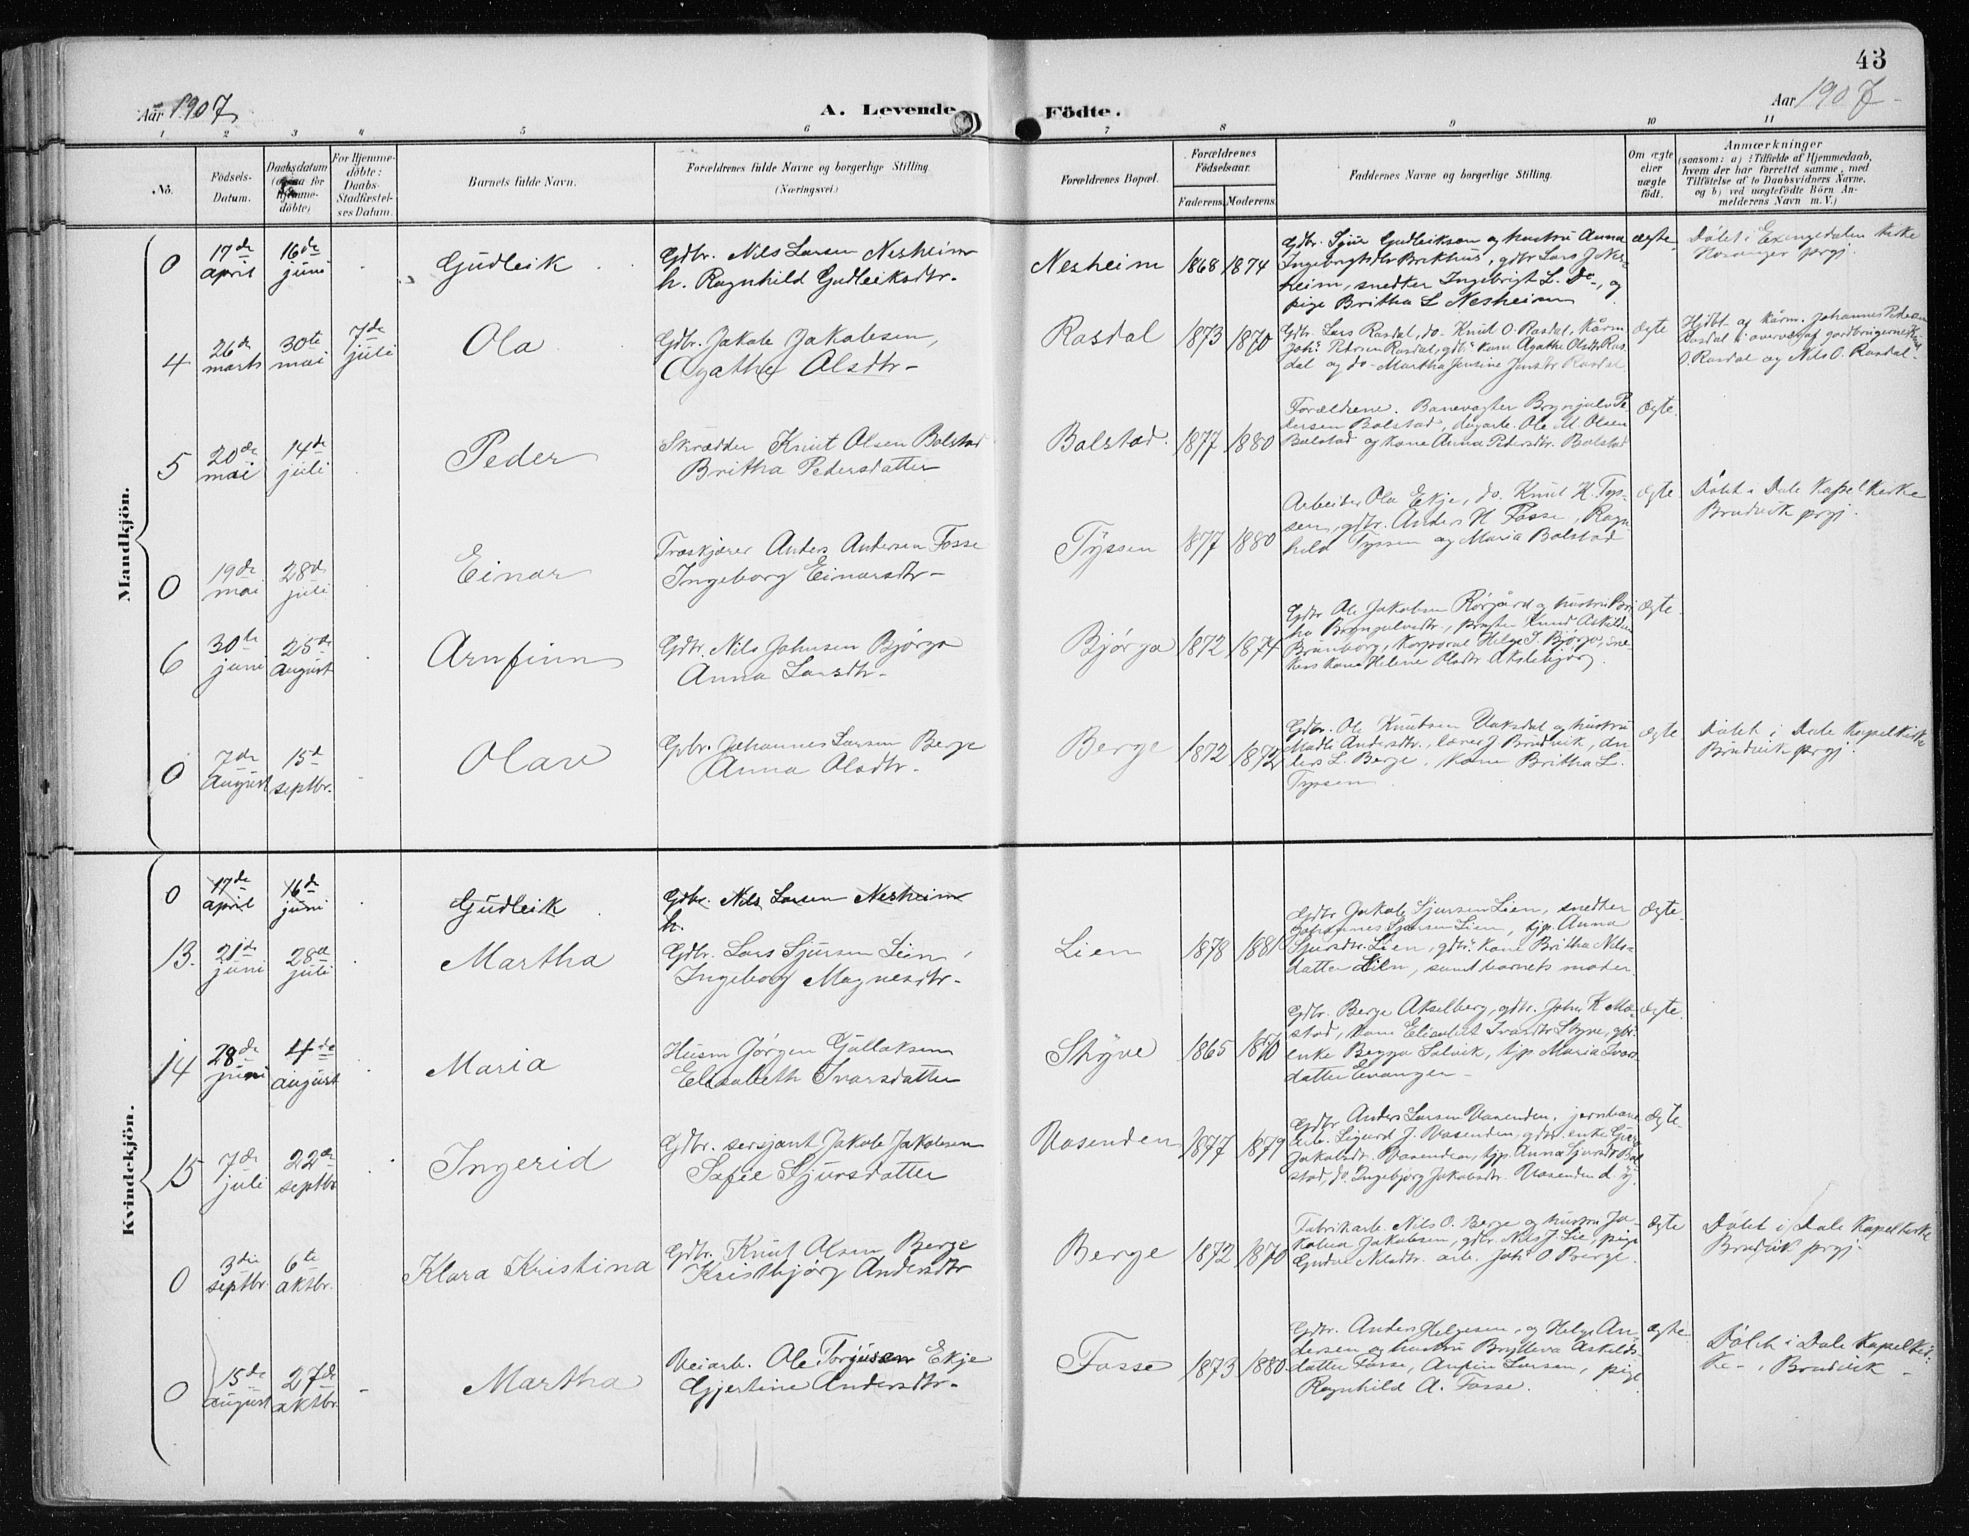 43
Aar 1907
A. Levende Födte.
Aar 1907
1 2 3 4 5 6 7 8 9 10 11
No.
Födsels-
Datum.
Daabsdatum
for
Hjemme-
döbte)
For Hjemme-
döbte:
Daabs-
Stadfæstel-
ses Datum.
Barnets fulde Navn.
Forældrenes fulde Navne og borgerlige Stilling
(Næringsvei.)
Forældrenes Bopæl.
Forældrenes
Födselsaar.
Faderens. Moderens.
Faddernes Navne og borgerlige Stilling.
Om ægte
eller
uægte
födt.
Anmærkninger
(saasom: a) i Tilfælde af Hjemmedaab,
hvem der har forrettet samme, med
Tilföielse af to Daabsvidners Navne,
og b) ved uægtefödte Börn An-
melderens Navn m. V.)
Mandkjön.
0
17de
april
16de
juni
Gudleik
Gdbr. Nils Larsen Nesheim
h. Ragnhild Gudleiksdtr.
Nesheim
1868 1874
Gdbr. Sjur Gudleiksen og hustru Anna
Ingebrigtsdtr Brekhus, gdbr Lars
heim, snedker Ingebrigt L. Do-, og
pige Britha L Nesheim
ægte
Døbt i Exingedalen kirke
Hosanger prgj.
4
26de
marts
30te
mai
7de
juli
Ola
Gdbr. Jakob Jakobsen,
Agathe Olsdtr-
Rasdal
1873 1870
Gdbr. Lars Rasdal, do- Knut O. Rasdal, kårm
Johs Pedersen Rasdal, gdbrs kone Agathe Olsdtr Ras-
dal og do- Martha Jensine Jensdtr Rasdal
ægte
Hjdbt af kårm. Johannes Pedersen
Rasdal i overvær af gardbrugerne Knut
O. Rasdal og Nils O. Rasdal-
5
20de
mai
14de
juli
Peder
Skrædder Knut Olsen Bolstad
Britha Pedersdatter
Bolstad.
1877 1880
Forældrene. Banevogter Brynjulv Pe-
dersen Bolstad, Ole M Olsen
Bolstad og kone Anna Pedersdtr. Bolstad
ægte
0
19de
mai
28de
juli
Einar
Træskjærer Anders Andersen Fosse
Ingeborg Einarsdtr-
Tyssen
1877 1880
Arbeider Ola Ekje, do. Knut K. Tys-
sen, gdbr. Anders H Fosse, Ragn-
hild Tyssen og Maria Bolstad
ægte
Døbt i Dale Kapelkirke
Bruvik prgj.
6
30te
juni
25de
august
Arnfinn
Gdbr. Nils Johnsen Bjørgo
Anna Larsdtr-
Bjørgo
1872 1874
Gdbr Ole Jakobsen Rørgård og hustru
Brynjulvsdtr, Knud Askildsen
Brunborg, korporal Helge J. Bjørgo,
kers kone Helene Olsdtr
ægte
0
7de
august
15de
septbr.
Olav
Gdbr. Johannes Larsen Berge
Anna Olsdtr.
Berge
1872 1872
Gdbr. Ole Knutsen Vaksdal og hustru
Madli Andersdtr., lærer J Bruvik, An-
ders L. Berge, kone Britha L.
Tyssen
ægte
Døbt i Dale Kapelkirke
Bruvik prgj.
Kvindekjön.
0
17de
april
16de
juni
Gudleik
Gdbr. Nils Larsen Nesheim
h.
13.
21de
juni
28de
juli
Martha
Gdbr. Lars Sjursen Lien,
Ingeborg Magnesdtr.
Lien
1878 1881
Gdbr Jakob Sjursen Lien, snedker
Johannes Sjursen Lien, tjp. Anna
Sjursdtr. Lien, gdbrs kone Britha Nils-
datter Lien, samt barnets moder
ægte
14
28de
juni
4de
august
Maria
Husm Jørgen Gullaksen
Elisabeth Ivarsdatter
Styve
1865 1870
Gdbr. Berge Akselberg, gdbr. John K Mæ-
stad, kone Elisabet Ivarsdtr Styve, gbr.
enke Begga Solvik, tjp Maria Ivars-
datter Evanger-
ægte
15
7de
juli
22de
septbr
Ingerid
Gdbr. sersjant Jakob Jakobsen
Safie Sjursdatter
Vasenden
1877 1879
Gdbr Anders Larsen Vasenden, jernbane
arb. Sigurd J. Vasenden, gdbr. enke Guro
Jakobsdtr. Vasenden, tjp. Anna Sjursdtr Bol-
stad, do. Ingebjørg Jakobsdtr. Vasenden d. y.
ægte
0
3die
septbr.
6te
oktbr.
Klara Kristina
Gdbr. Knut Olsen Berge
Kristbjørg Andersdtr
Berge
1872 1870
Fabrikarb. Nils O. Berge og hustru Ja-
kobia Jakobsen, gdbr Nils J Lie, pige
Gudve Nilsdtr. arb. Joh. O Berge.
ægte
Døbt i Dale Kapelkirke
Bruvik prgj-
0
15de
august
27de
oktbr.
Martha
Veiarb. Ole Torjusen Ekje
Gjertine Andersdtr.
Fosse
1873 1880
Gdbr. Anders Helgesen, og Helge An-
dersen og hustru Brylleva Askilds-
datter Fosse, Anfin Larsen, pige
Ragnhild A. Fosse.
ægte
Døbt i Dale Kapelkir-
ke- i Bruvik-